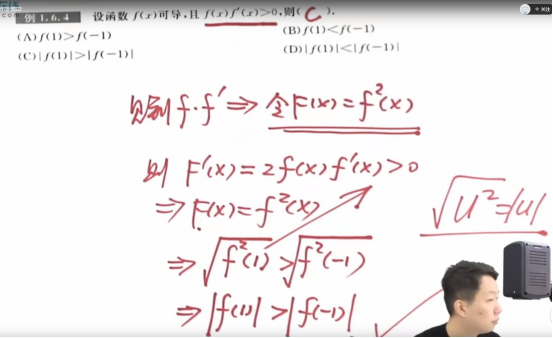 例 1.6.4 设函数 f(x)可导,且 f(x)f′(x)>0,则( C ).
(A) f(1)>f(-1) (B) f(1)<f(-1)
(C) |f(1)|>|f(-1)| (D) |f(1)|<|f(-1)|
见到 f·f′ ⇒ 令F(x)=f²(x)
则 F′(x)=2f(x)f′(x)>0
⇒ F(x)=f²(x)↗
√u²=|u|
⇒ √f²(1)>√f²(-1)
⇒ |f(1)|>|f(-1)|